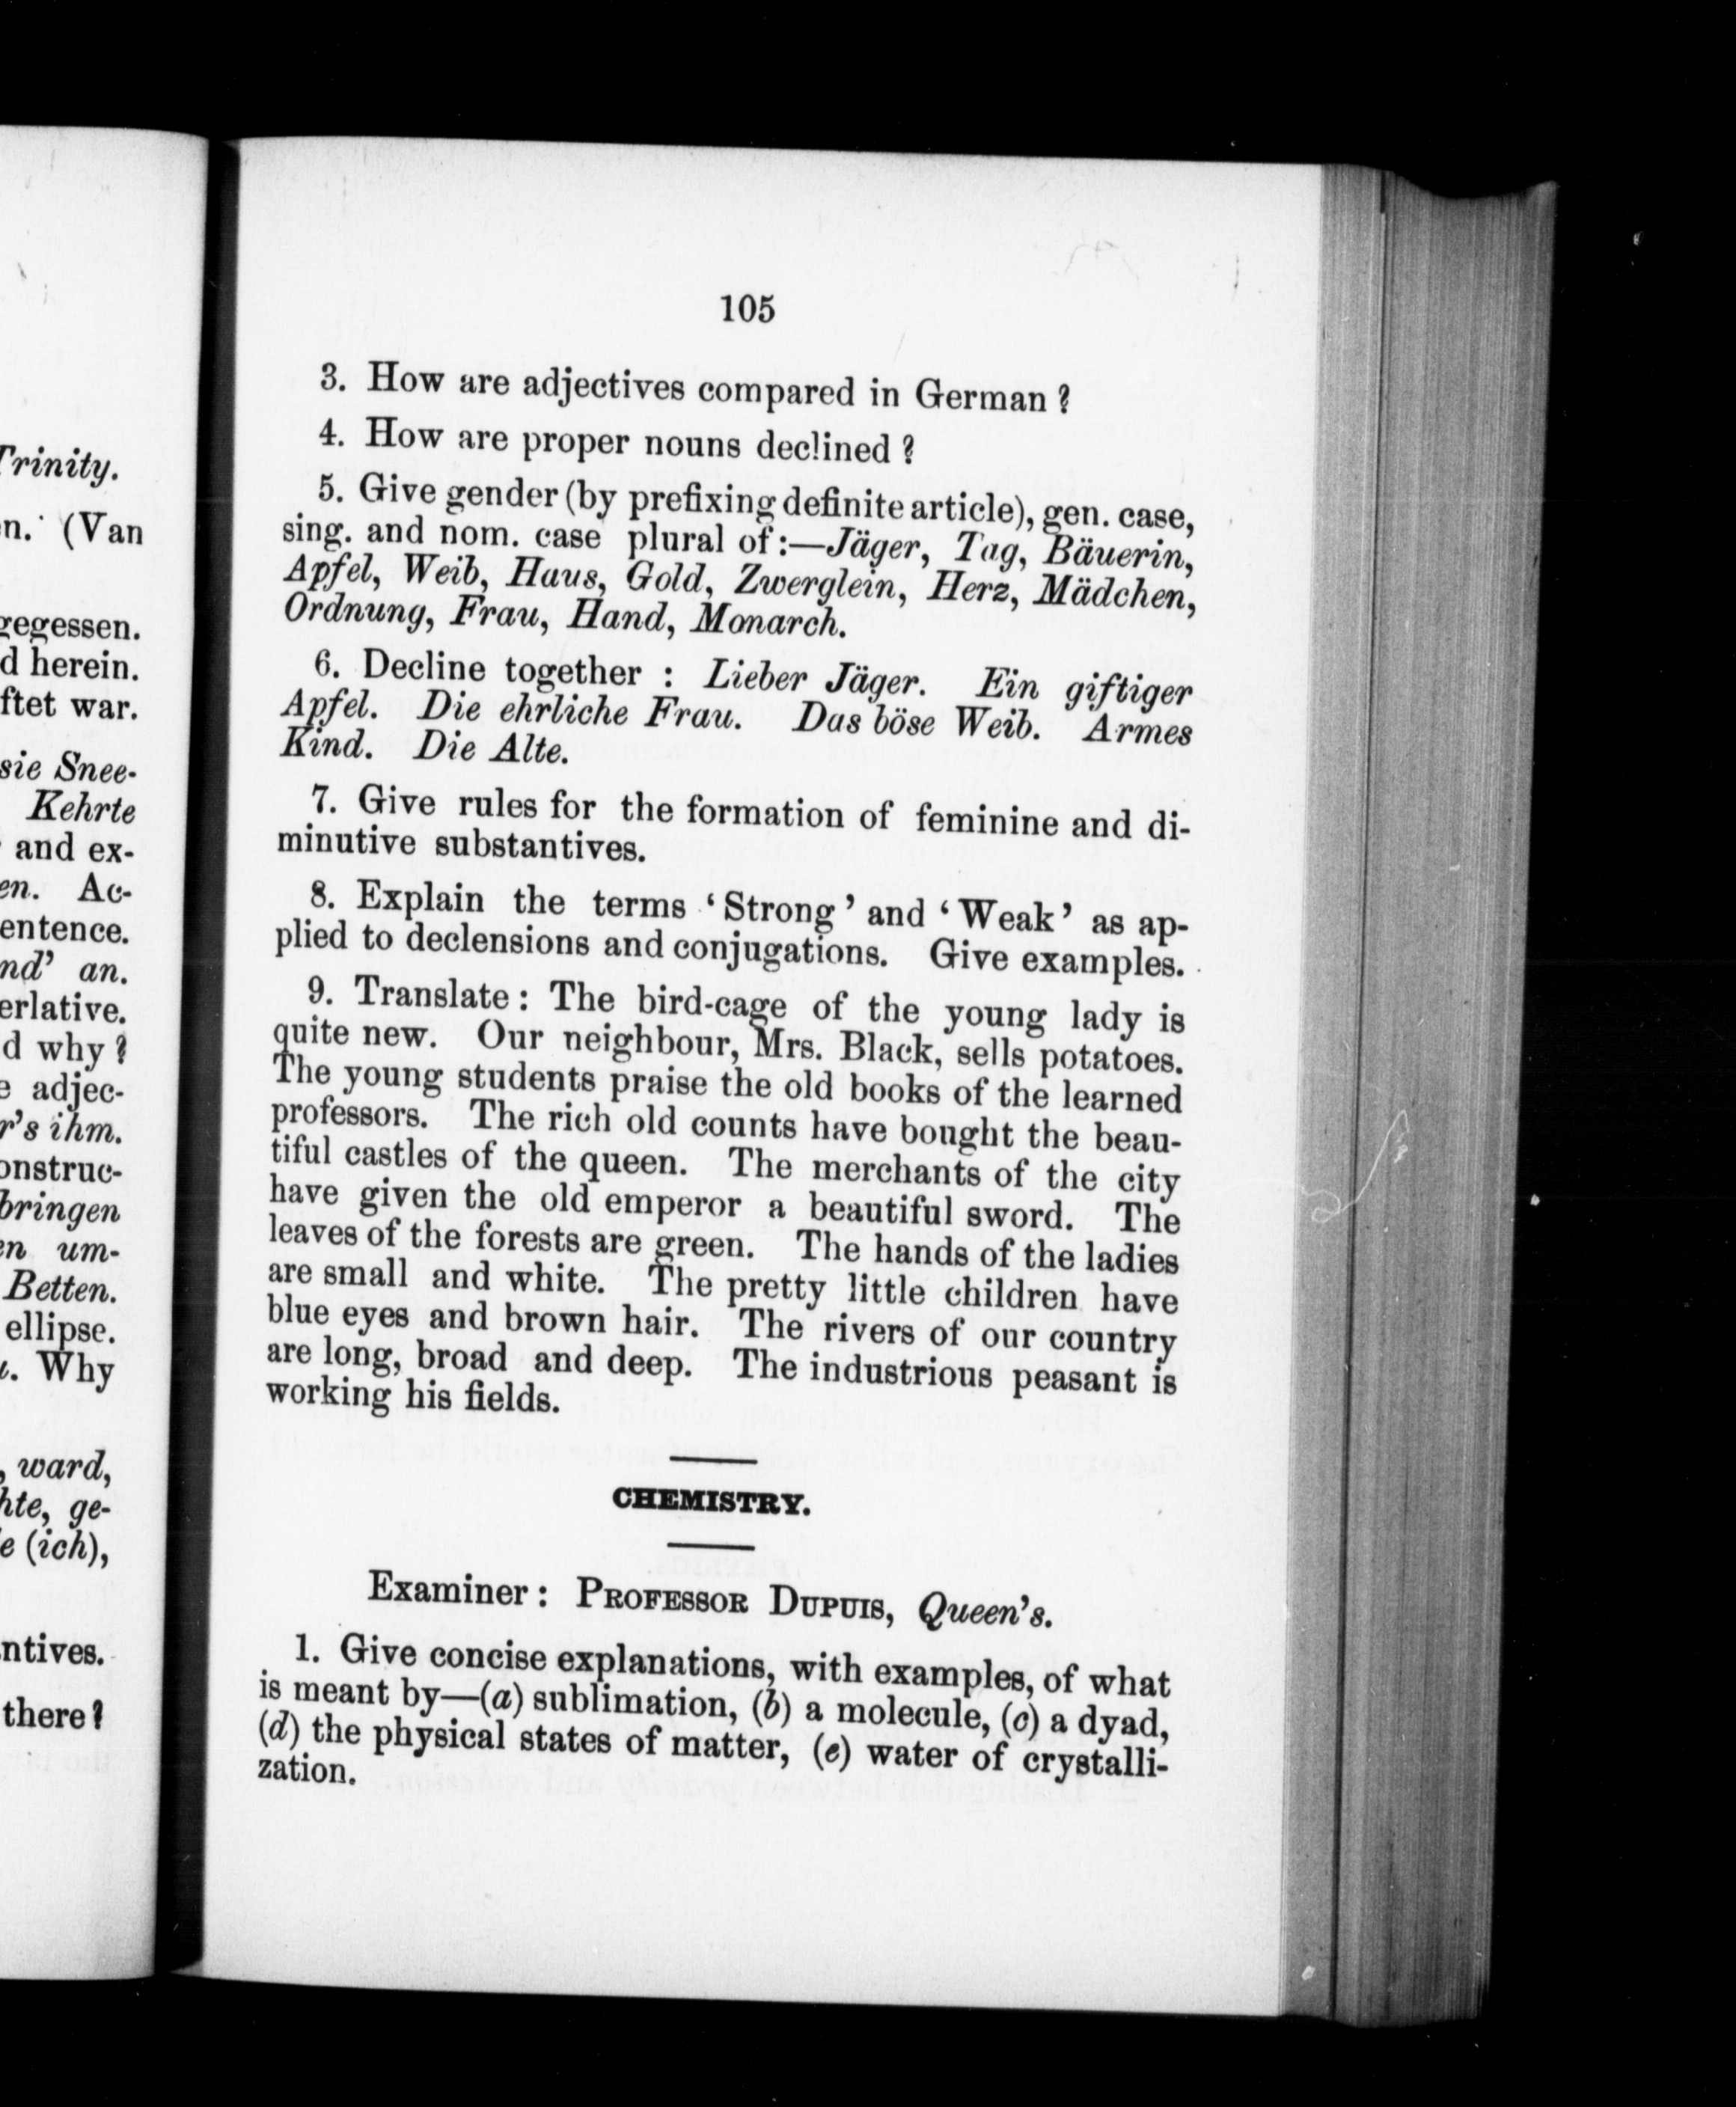 Trinity.
(Van
gegessen.
d herein.
ftet war.
sie Snee-
Kehrte
and ex-
en. Ac-
entence.
nd' an.
erlative.
d why?
e adjec-
r's ihm.
onstruc-
bringen
en um-
Betten.
ellipse.
Why
, ward,
hte, ge-
e (ich),
ntives.
there?
105
3. How are adjectives compared in German?
4. How are proper nouns declined?
5. Give gender (by prefixing definite article), gen. case,
sing. and nom. case plural of:—Jäger, Tag, Bäuerin,
Apfel, Weib, Haus, Gold, Zwerglein, Herz, Mädchen,
Ordnung, Frau, Hand, Monarch.
6. Decline together : Lieber Jäger. Ein giftiger
Apfel. Die ehrliche Frau. Das böse Weib. Armes
Kind. Die Alte.
7. Give rules for the formation of feminine and di-
minutive substantives.
8. Explain the terms 'Strong' and 'Weak' as ap-
plied to declensions and conjugations. Give examples.
9. Translate: The bird-cage of the young lady is
quite new. Our neighbour, Mrs. Black, sells potatoes.
The young students praise the old books of the learned
professors. The rich old counts have bought the beau-
tiful castles of the queen. The merchants of the city
have given the old emperor a beautiful sword. The
leaves of the forests are green. The hands of the ladies
are small and white. The pretty little children have
blue eyes and brown hair. The rivers of our country
are long, broad and deep. The industrious peasant is
working his fields.
CHEMISTRY.
Examiner: PROFESSOR DUPUIS, Queen's.
1. Give concise explanations, with examples, of what
is meant by—(a) sublimation, (b) a molecule, (c) a dyad,
(d) the physical states of matter, (e) water of crystalli-
zation.